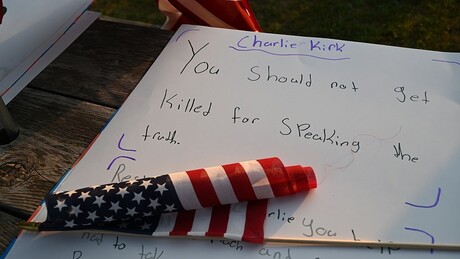 Charlie Kirk
You should not get
killed for speaking the
truth.
you
not to talk and